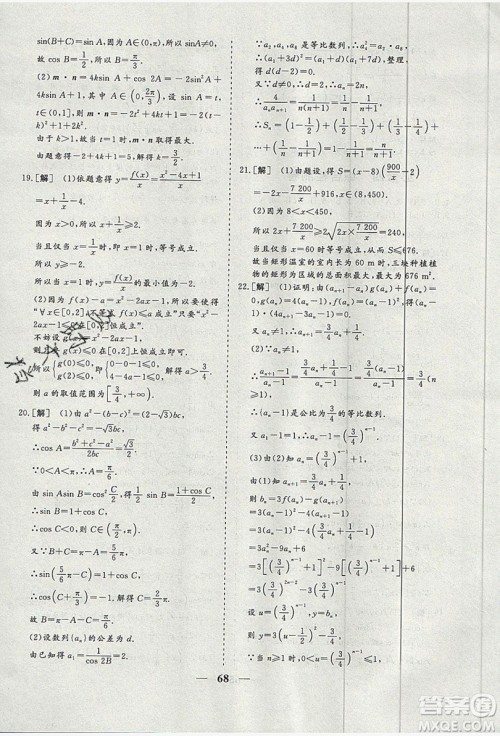 sin(B+C)=sin A,因为A∈(0,π),所以sinA≠0,
故cos B=1/2,所以B=π/3.
(2)m·n=4ksin A+cos2A=-2sin²A+
4ksin A+1,
由于A∈(0,2π/3),设sin A=t,则t∈
(0,1],m·n=-2t²+4kt+1,t∈(0,1],
由于k>1,故当t=1时,m·n取得最大值.
由题意得-2+4k+1=5,解得k=3/2.
19.[解] (1)依题意得y=f(x)/x=(x²-4x+1)/x
=x+1/x-4.
因为x>0,所以x+1/x≥2.
当且仅当x=1/x,即x=1时,等号成立.
所以y≥-2.
所以当x=1时,y=f(x)/x的最小值为-2.
(2)因为f(x)-a=x²-2ax-1,所以要使得
“∀x∈[0,2],不等式f(x)≤a成立”,只要“x²-
2ax-1≤0在[0,2]恒成立”.
不妨设g(x)=x²-2ax-1,
则只要g(x)≤0在[0,2]上恒成立即可.
所以{g(0)≤0, g(2)≤0,即{0-0-1≤0, 4-4a-1≤0,解得a≥3/4.
则a的取值范围为[3/4,+∞).
20.[解] (1)由a²-(b-c)²=(2-√3)bc,
∴cos A=(b²+c²-a²)/2bc=√3/2.
又∵0<A<π,∴A=π/6.
由sin Asin B=cos²C/2,得1/2sin B=(1+cos C)/2,
即sin B=1+cos C.
∴cos C<0,即C∈(π/2,π),
又∵B∈(0,π/2),A=π/6,
∴sin B=1+cos C,
即sin(C+π/6)=1+cos C,∴cos(C+π/3)=-1,
故B=π/6,C=2π/3.
(2)设数列{aₙ}的公差为d,
由已知得a₁=1/cos 2B=2,
∵a₂,a₄,a₈是等比数列,∴a₄²=a₂a₈,
∴(a₁+3d)²=(a₁+d)(a₁+7d),整理,
得d(d-2)=0.
又∵d≠0,∴d=2,∴aₙ=2n,
∴4/aₙaₙ₊₁=1/n(n+1)=1/n-1/(n+1),
∴Sₙ=(1-1/2)+(1/2-1/3)+(1/3-1/4)
+…+(1/n-1/(n+1))=1-1/(n+1)=n/(n+1).
21.[解] (1)由题设,得S=(x-8)(900/x-2)
=-2x-7 200/x+916,x∈(8,450).
(2)因为8<x<450,
所以2x+7 200/x≥2√(2x×7 200/x)=240,
当且仅当x=60时等号成立,从而S≤676.
故当矩形温室的室内长为60 m时,三块种植植
物的矩形区域的总面积最大,最大为676 m².
22.[解] (1)证明:由(aₙ₊₁-aₙ)g(aₙ)+f(aₙ)
=0得
4(aₙ₊₁-aₙ)(aₙ-1)+(aₙ-1)²=0,
所以aₙ-1=0或4(aₙ₊₁-aₙ)+(aₙ-1)=0.
又∵a₁=2,∴aₙ₊₁=3/4aₙ+1/4.
∵(aₙ₊₁-1)/(aₙ-1)=(3/4aₙ+1/4-1)/(aₙ-1)=3/4(aₙ-1)/(aₙ-1)=3/4(n
≥1),
∴{aₙ-1}是公比为3/4的等比数列.
又a₁-1=1,∴aₙ-1=(3/4)ⁿ⁻¹.
(3)由(2)知aₙ=(3/4)ⁿ⁻¹+1,
则bₙ=3f(aₙ)-g(aₙ₊₁)
=3(aₙ-1)²-4(aₙ₊₁-1)
=3(aₙ-1)²-4(3/4aₙ+1/4-1)
=3aₙ²-9aₙ+6
=3[(3/4)ⁿ⁻¹+1]²-9[(3/4)ⁿ⁻¹+1]+6
=3(3/4)²ⁿ⁻²-3(3/4)ⁿ⁻¹
设u=(3/4)ⁿ⁻¹,
则y=3[(u-1/2)²-1/4].
又当n≥1时,0<u=(3/4)ⁿ⁻¹≤1,
68
作业答案
MXQE.COM